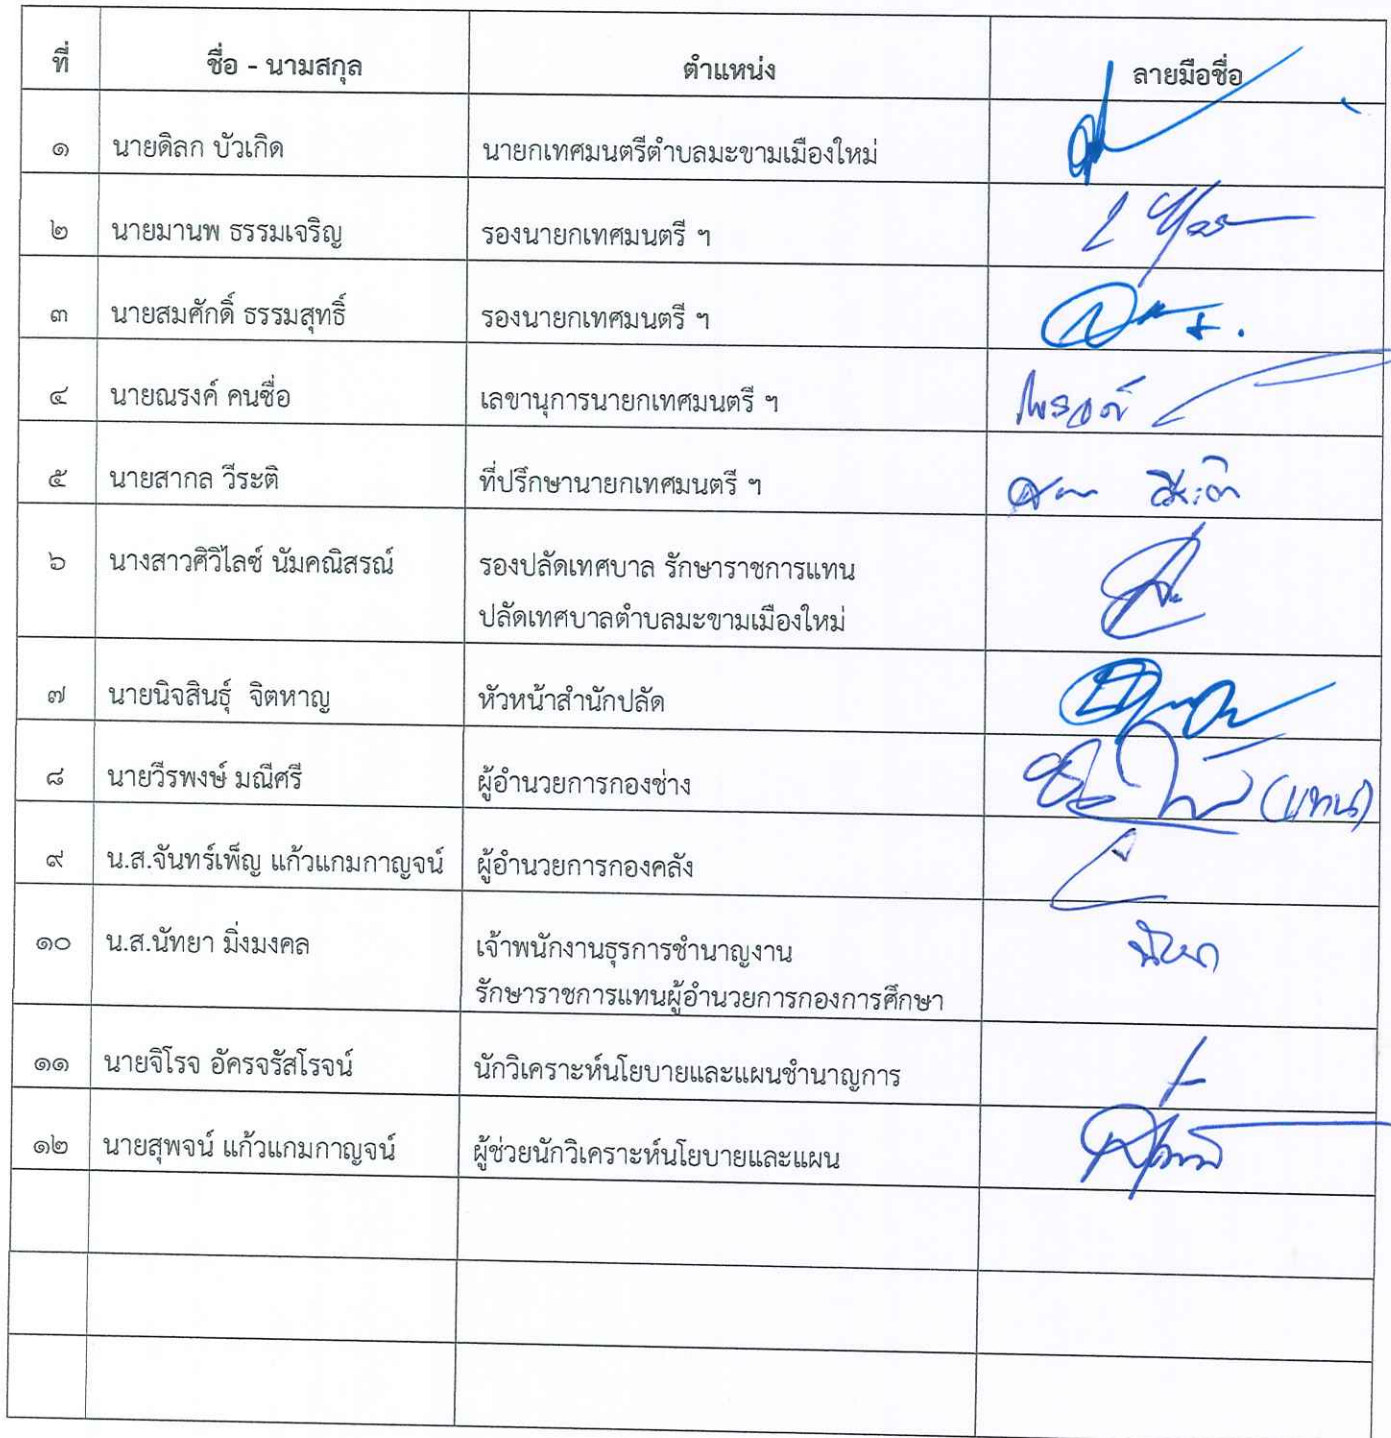 ที่ ชื่อ - นามสกุล ตำแหน่ง ลายมือชื่อ
๑ นายดิลก บัวเกิด นายกเทศมนตรีตำบลมะขามเมืองใหม่
๒ นายมานพ ธรรมเจริญ รองนายกเทศมนตรี ฯ
๓ นายสมศักดิ์ ธรรมสุทธิ์ รองนายกเทศมนตรี ฯ
๔ นายณรงค์ คนซื่อ เลขานุการนายกเทศมนตรี ฯ
๕ นายสากล วีระติ ที่ปรึกษานายกเทศมนตรี ฯ
๖ นางสาวศิวิไลซ์ นัมคณิสรณ์ รองปลัดเทศบาล รักษาราชการแทน
ปลัดเทศบาลตำบลมะขามเมืองใหม่
๗ นายนิจสินธุ์ จิตหาญ หัวหน้าสำนักปลัด
๘ นายวีรพงษ์ มณีศรี ผู้อำนวยการกองช่าง (แทน)
๙ น.ส.จันทร์เพ็ญ แก้วแกมกาญจน์ ผู้อำนวยการกองคลัง
๑๐ น.ส.นัทยา มิ่งมงคล เจ้าพนักงานธุรการชำนาญงาน
รักษาราชการแทนผู้อำนวยการกองการศึกษา
๑๑ นายจิโรจ อัครจรัสโรจน์ นักวิเคราะห์นโยบายและแผนชำนาญการ
๑๒ นายสุพจน์ แก้วแกมกาญจน์ ผู้ช่วยนักวิเคราะห์นโยบายและแผน